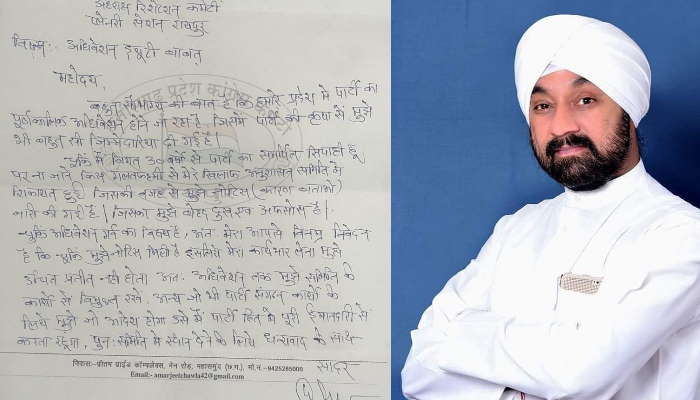 अध्यक्ष रिसेप्शन कमेटी
प्लेनरी सेशन रायपुर
विषय:- अधिवेशन ड्यूटी बाबत्
महोदय,
बहुत सौभाग्य की बात है कि हमारे प्रदेश में पार्टी का
पूर्णकालिक अधिवेशन होने जा रहा है, जिसमें पार्टी की कृपा से मुझे
भी बहुत सी जिम्मेदारियां दी गई है।
चूंकि मैं विगत 30 वर्षों से पार्टी का समर्पित सिपाही हूँ
पर ना जाने किस गलतफहमी से मेरे खिलाफ अनुशासन समिति में
शिकायत हुई जिसकी वजह से मुझे नोटिस (कारण बताओ)
जारी की गई है। जिसका मुझे बेहद दुख एवं अफसोस है।
चूंकि अधिवेशन गर्व का विषय है, अतः मेरा आपसे विनम्र निवेदन
है कि चूंकि मुझे नोटिस मिली है इसलिये मेरा कार्यभार लेना मुझे
उचित प्रतीत नहीं होता अतः अधिवेशन तक मुझे समिति के
कार्यों से विमुक्त रखें, अन्य जो भी पार्टी संगठन कार्यों के
लिये मुझे जो आदेश होगा उसे मैं पार्टी हित में पूरी ईमानदारी से
करता रहूंगा, पुनः समिति में स्थान देने के लिये धन्यवाद के साथ
सादर
निवास:-प्रीतम प्राईड कॉम्पलेक्स, मेन रोड, महासमुंद (छ.ग.) मो.नं.-9425205000
Email:- amarjeetchawla42@gmail.com